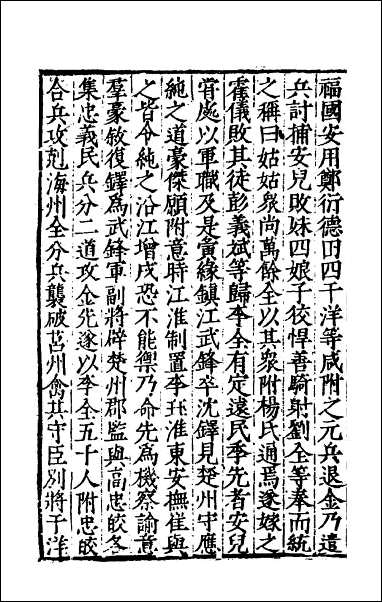 福國安用鄭衍德田四干洋等咸附之元兵退金乃遣
兵討捕安兒敗妹四娘子狡悍善騎射劉全等奉而統
之稱曰姑姑衆尚萬餘全以其衆附楊氏通焉遂嫁之
霍儀敗其徒彭義斌等歸李全有定遠民李先者安兒
嘗處以軍職及是夤緣鎮江武鋒卒沈鐸見楚州守應
純之道豪傑願附意時江淮制置李珏淮東安撫崔與
之皆令純之沿江增戍恐不能禦乃命先為機察諭意
羣豪敘復鐸為武鋒軍副將辟楚州郡監與高忠皎各
集忠義民兵分二道攻金先遂以李全五千人附忠皎
合兵攻剋海州全分兵襲破莒州禽其守臣別將于洋